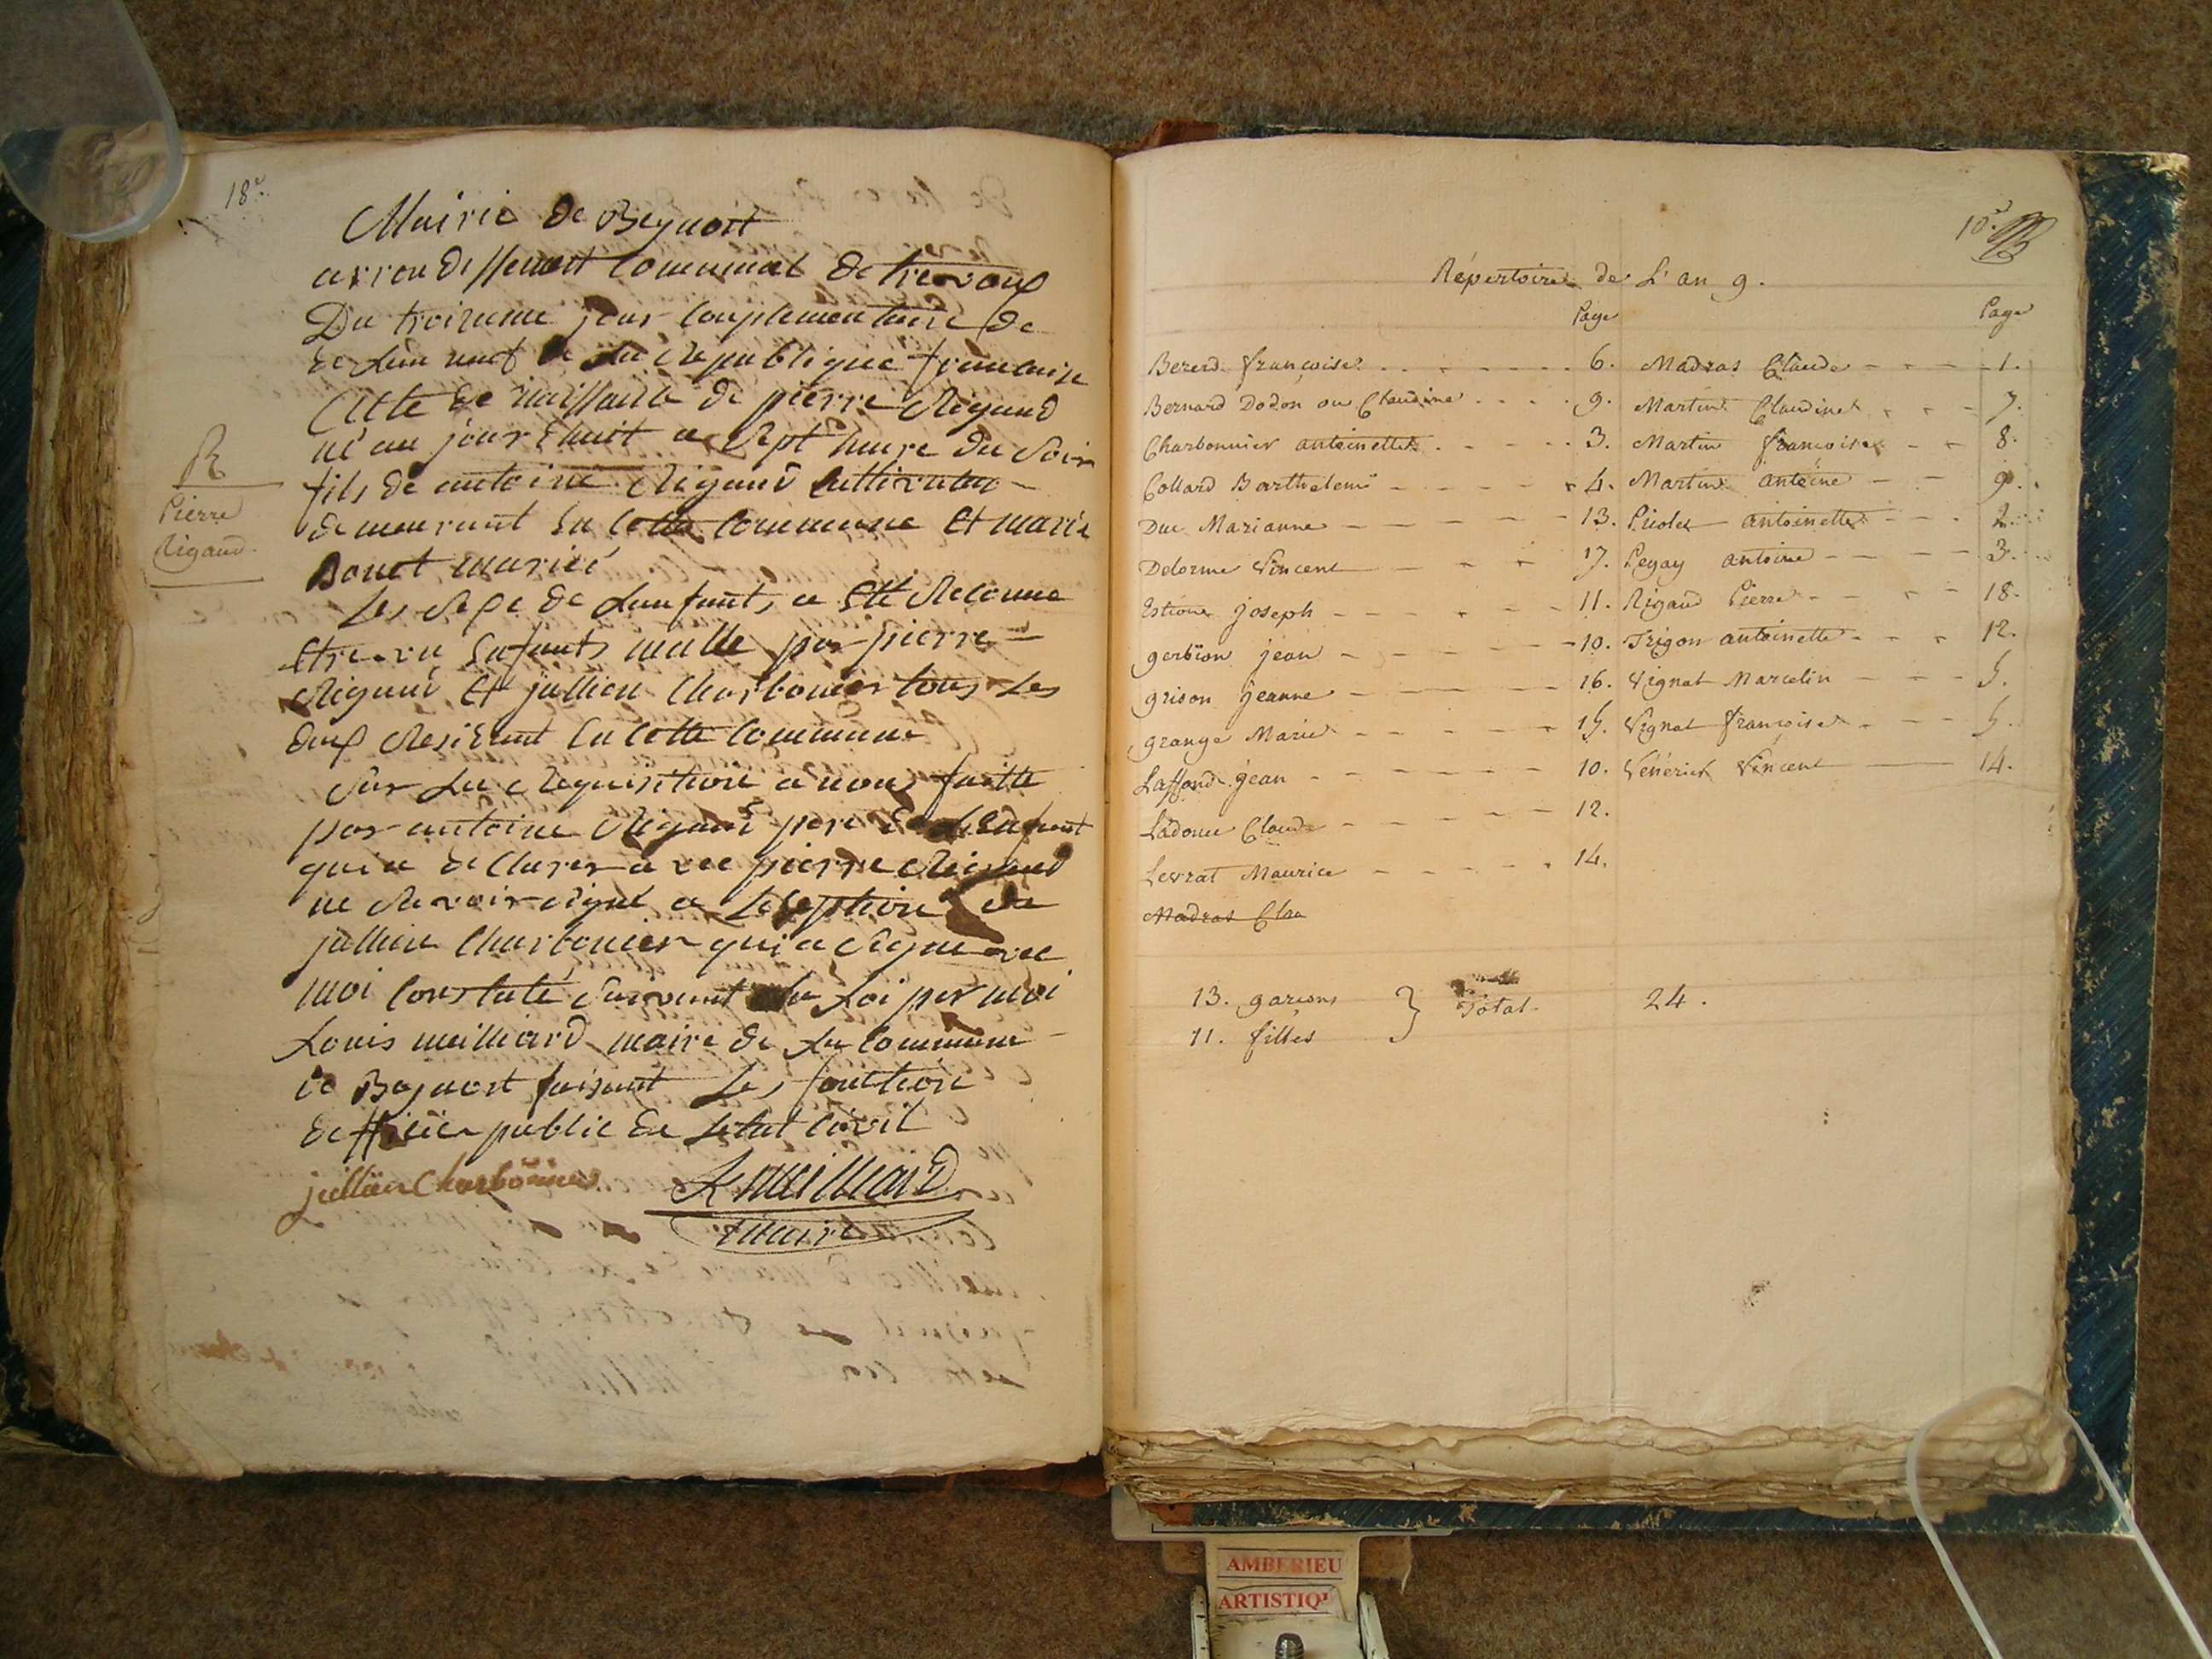 18e.
Mairie de Beynost
arrondissement Communal de trevoux
Du troisieme jour Complementaire de
de Lan neuf de La Republique francaise
Acte de naissance de pierre Rigaud
né au jourdhuit a Sept heure du Soir
fils de antoine Rigaud Cultivateur
demeurant En Cette Commune Et marie
Bonet mariéé
R
Pierre
Rigaud.
Le Sexe de Lenfant, a Etté Reconnue
Etre un Enfants malle par pierre
Rigaud Et jullien Charbonier tous Les
deux Residant En Cette Commune
Sur La Requisition a nous faitte
par antoine Rigaud pere de LEnfant
qui a declarer avec pierre Rigaud
ne Savoir signé a Leseption de
jullien Charbonier qui a Signe avec
moi Constaté Suivant La Loi par moi
Louis meilliard maire de La Commune
de Beynost faisant Les fonction
defficier public de Letat Civil
jullien Charbonnier L meilliard
maire
10e.
Répertoire de L'an 9.
Page Page
Bererd françoise 6. Madras Claude 1.
Bernard Dodon ou Claudine 9. Martin Claudine 7.
Charbonnier antoinette 3. Martin françoise 8.
Collard Barthelemi 4. Martin antoine 9.
Duc Marianne 13. Picolet antoinette 2.
Delorme Vincent 17. Pegay antoine 3.
Estione joseph 11. Rigaud Pierre 18.
gerbion jean 10. Trigon antoinette 12.
grison jeanne 16. Vignat Marcelin 5.
grange Marie 15. Vignat françoise 5.
Laffond jean 10. Vénérier Vincent 14.
Ladouce Claude 12.
Levrat Maurice 14.
Madras Cla
13. garçons } Total 24.
11. filles
AMBERIEU
ARTISTIQ